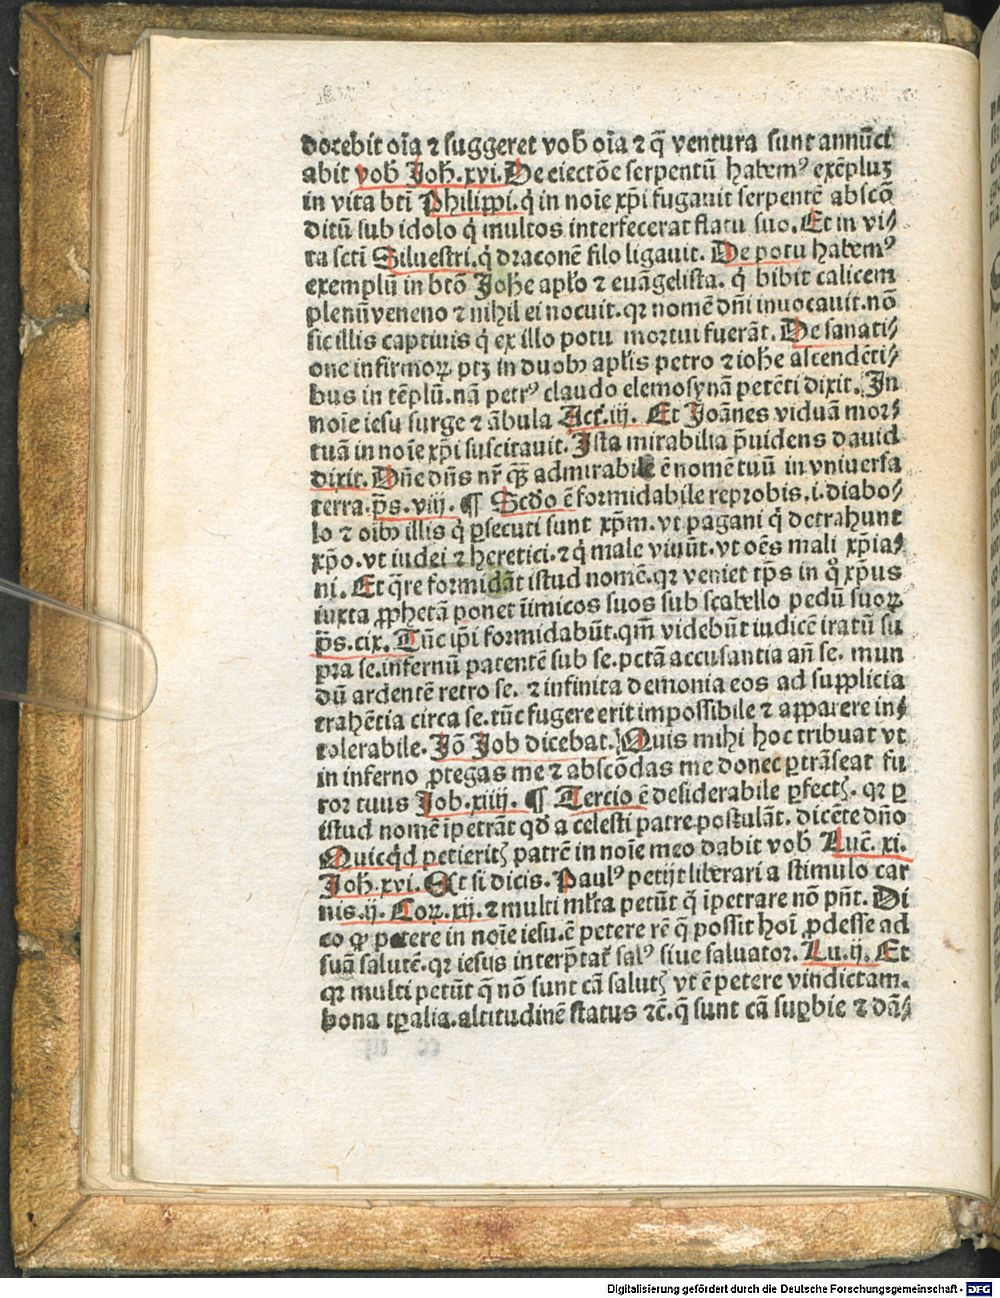 docebit oīa ⁊ suggeret vob̄ oīa ⁊ q̄ ventura sunt annūci
abit vob̄ Joh̄.xvi. De eiectōe serpentū habemꝰ exēpluꝫ
in vita btī Philippi. q̇ in noīe xp̄i fugauit serpentē abscō
ditū sub idolo q̇ multos interfecerat flatu suo. Et in vi⸗
ta sctī Siluestri. q̇ draconē filo ligauit. De potu habemꝰ
exemplū in btō Joh̄e apl̄o ⁊ euāgelista. q̇ bibit calicem
plenū veneno ⁊ nihil ei nocuit. qꝛ nomē dn̄i inuocauit. nō
sic illis captiuis q̇ ex illo potu mortui fuerāt. De sanati⸗
one infirmoꝝ ptꝫ in duobꝰ apl̄is petro ⁊ ioh̄e ascendēti⸗
bus in tēplū. nā petrꝰ claudo elemosynā petēti dixit. In
noīe iesu surge ⁊ ābula Act̄.iij. Et Joānes viduā mor⸗
tuā in noīe xp̄i suscitauit. Ista mirabilia p̄uidens dauid
dixit. Dn̄e dn̄s nr̄ qꝫ̄ admirabile ē nomē tuū in vniuersa
terra. p̄s.viij. ¶ Scd̄o ē formidabile reprobis .i. diabo⸗
lo ⁊ oībꝰ illis q̇ ꝑsecuti sunt xp̄m. vt pagani q̇ detrahunt
xp̄o. vt iudei ⁊ heretici. ⁊ q̇ male viuūt. vt oēs mali xp̄ia⸗
ni. Et q̄re formidāt istud nomē. qꝛ veniet tp̄s in q̊ xp̄us
iuxta ꝓphetā ponet īimicos suos sub scabello pedū suoꝝ
p̄s.cix. Tūc ip̄i formidabūt. qm̄ videbūt iudicē iratū su
pra se. infernū patentē sub se. pctā accusantia an̄ se. mun
dū ardentē retro se. ⁊ infinita demonia eos ad supplicia
trahētia circa se. tūc fugere erit impossibile ⁊ apparere in⸗
tolerabile. Jō Job dicebat. Quis mihi hoc tribuat vt
in inferno ꝓtegas me ⁊ abscōdas me donec ꝑtrāseat fu
ror tuus Job.xiiij. ¶ Tercio ē desiderabile ꝑfectꝭ. qꝛ ꝑ
istud nomē īpetrāt qd̄ a celesti patre postulāt. dicēte dn̄o
Quicq̇d petieritꝭ patrē in noīe meo dabit vob̄ Luc̄. xi.
Joh̄.xvi. Et si dicis. Paulꝰ petijt liberari a stimulo car
nis .ij. Coꝝ.xij. ⁊ multi ml̄ta petūt q̄ īpetrare nō pn̄t. Di
co ꝙ petere in noīe iesu. ē petere rē q̄ possit hoī ꝓdesse ad
suā salutē. qꝛ iesus interp̄tat᷑ salꝰ siue saluator. Lu.ij. Et
qꝛ multi petūt q̄ nō sunt cā salutꝭ vt ē petere vindictam.
bona tꝑalia. altitudinē status ⁊c̄. q̄ sunt cā suꝑbie ⁊ dā⸗
Digitalisierung gefördert durch die Deutsche Forschungsgemeinschaft - DFG